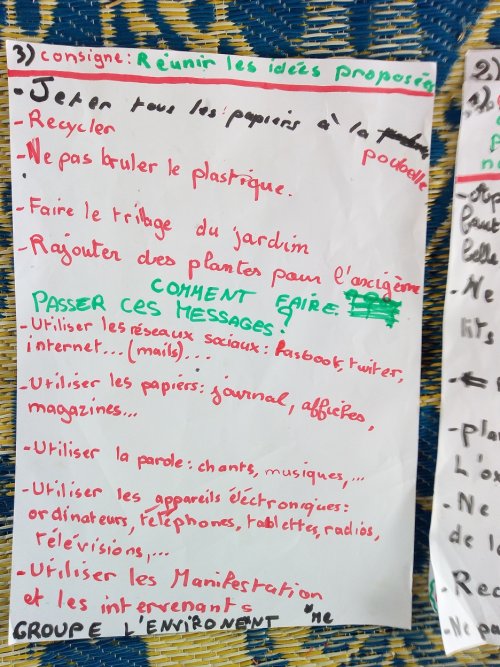 3) consigne: Réunir les idées proposées
- Jeter tous les papiers à la
poubelle
- Recycler
- Ne pas bruler le plastique.
- Faire le trilage du jardin
- Rajouter des plantes pour l'oxcigème
COMMENT FAIRE
PASSER CES MESSAGES?
- Utiliser les réseaux sociaux: Fasbook, twiter,
internet...(mails)...
- Utiliser les papiers: journal, affiches,
magazines...
- Utiliser la parole: chants, musiques,...
- Utiliser les appareils éléctroniques:
ordinateurs, téléphones, tablettes, radios,
télévisions,...
- Utiliser les Manifestation
et les intervenants
GROUPE L'ENVIRONENT
2)
- Ne
- plan
L'ox
- Ne
de l
- Rec
- Ne pa